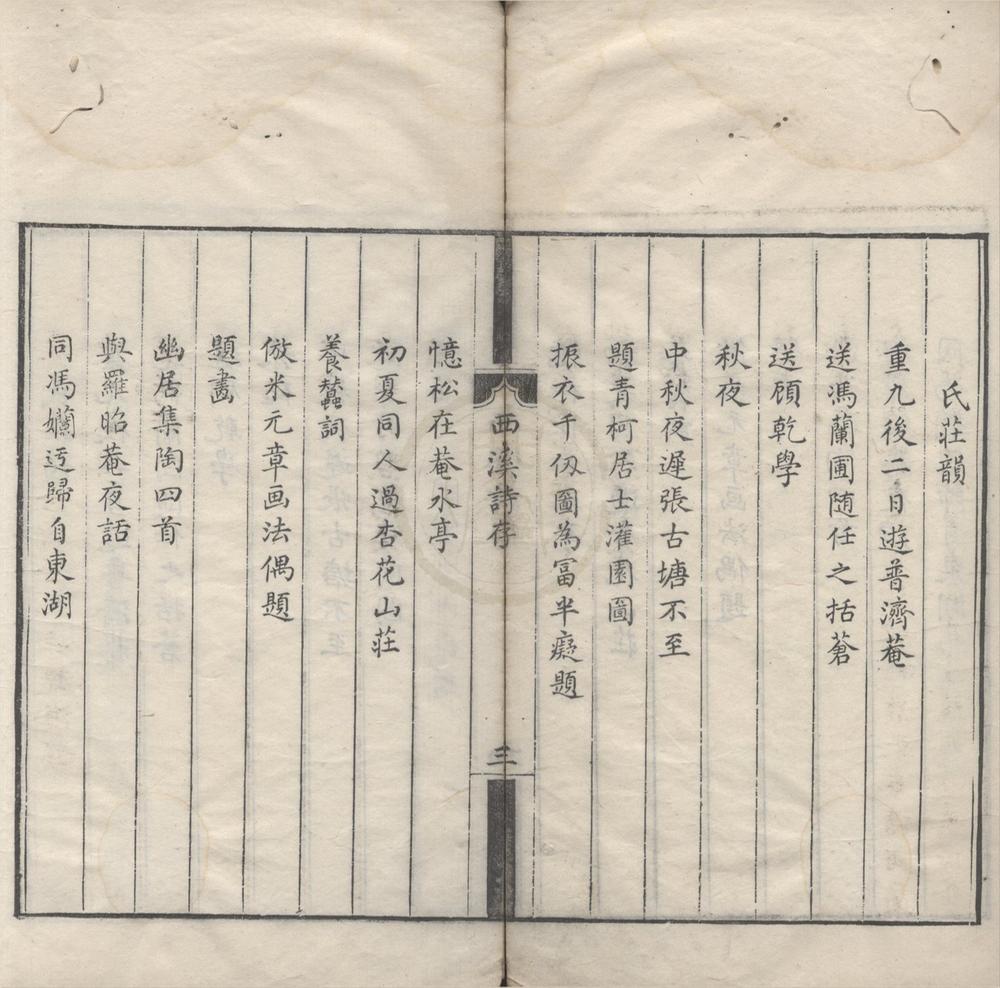 氏莊韻
重九後二日遊普濟菴
送馮蘭圃随任之括蒼
送顧乾學
秋夜
中秋夜遲張古塘不至
題青柯居士灌園圖
振衣千仭圖為冨半癡題
西溪詩存
三
憶松在菴水亭
初夏同人過杏花山莊
養蠶詞
倣米元章画法偶題
題畫
幽居集陶四首
與羅昭菴夜話
同馮嬾迃歸自東湖